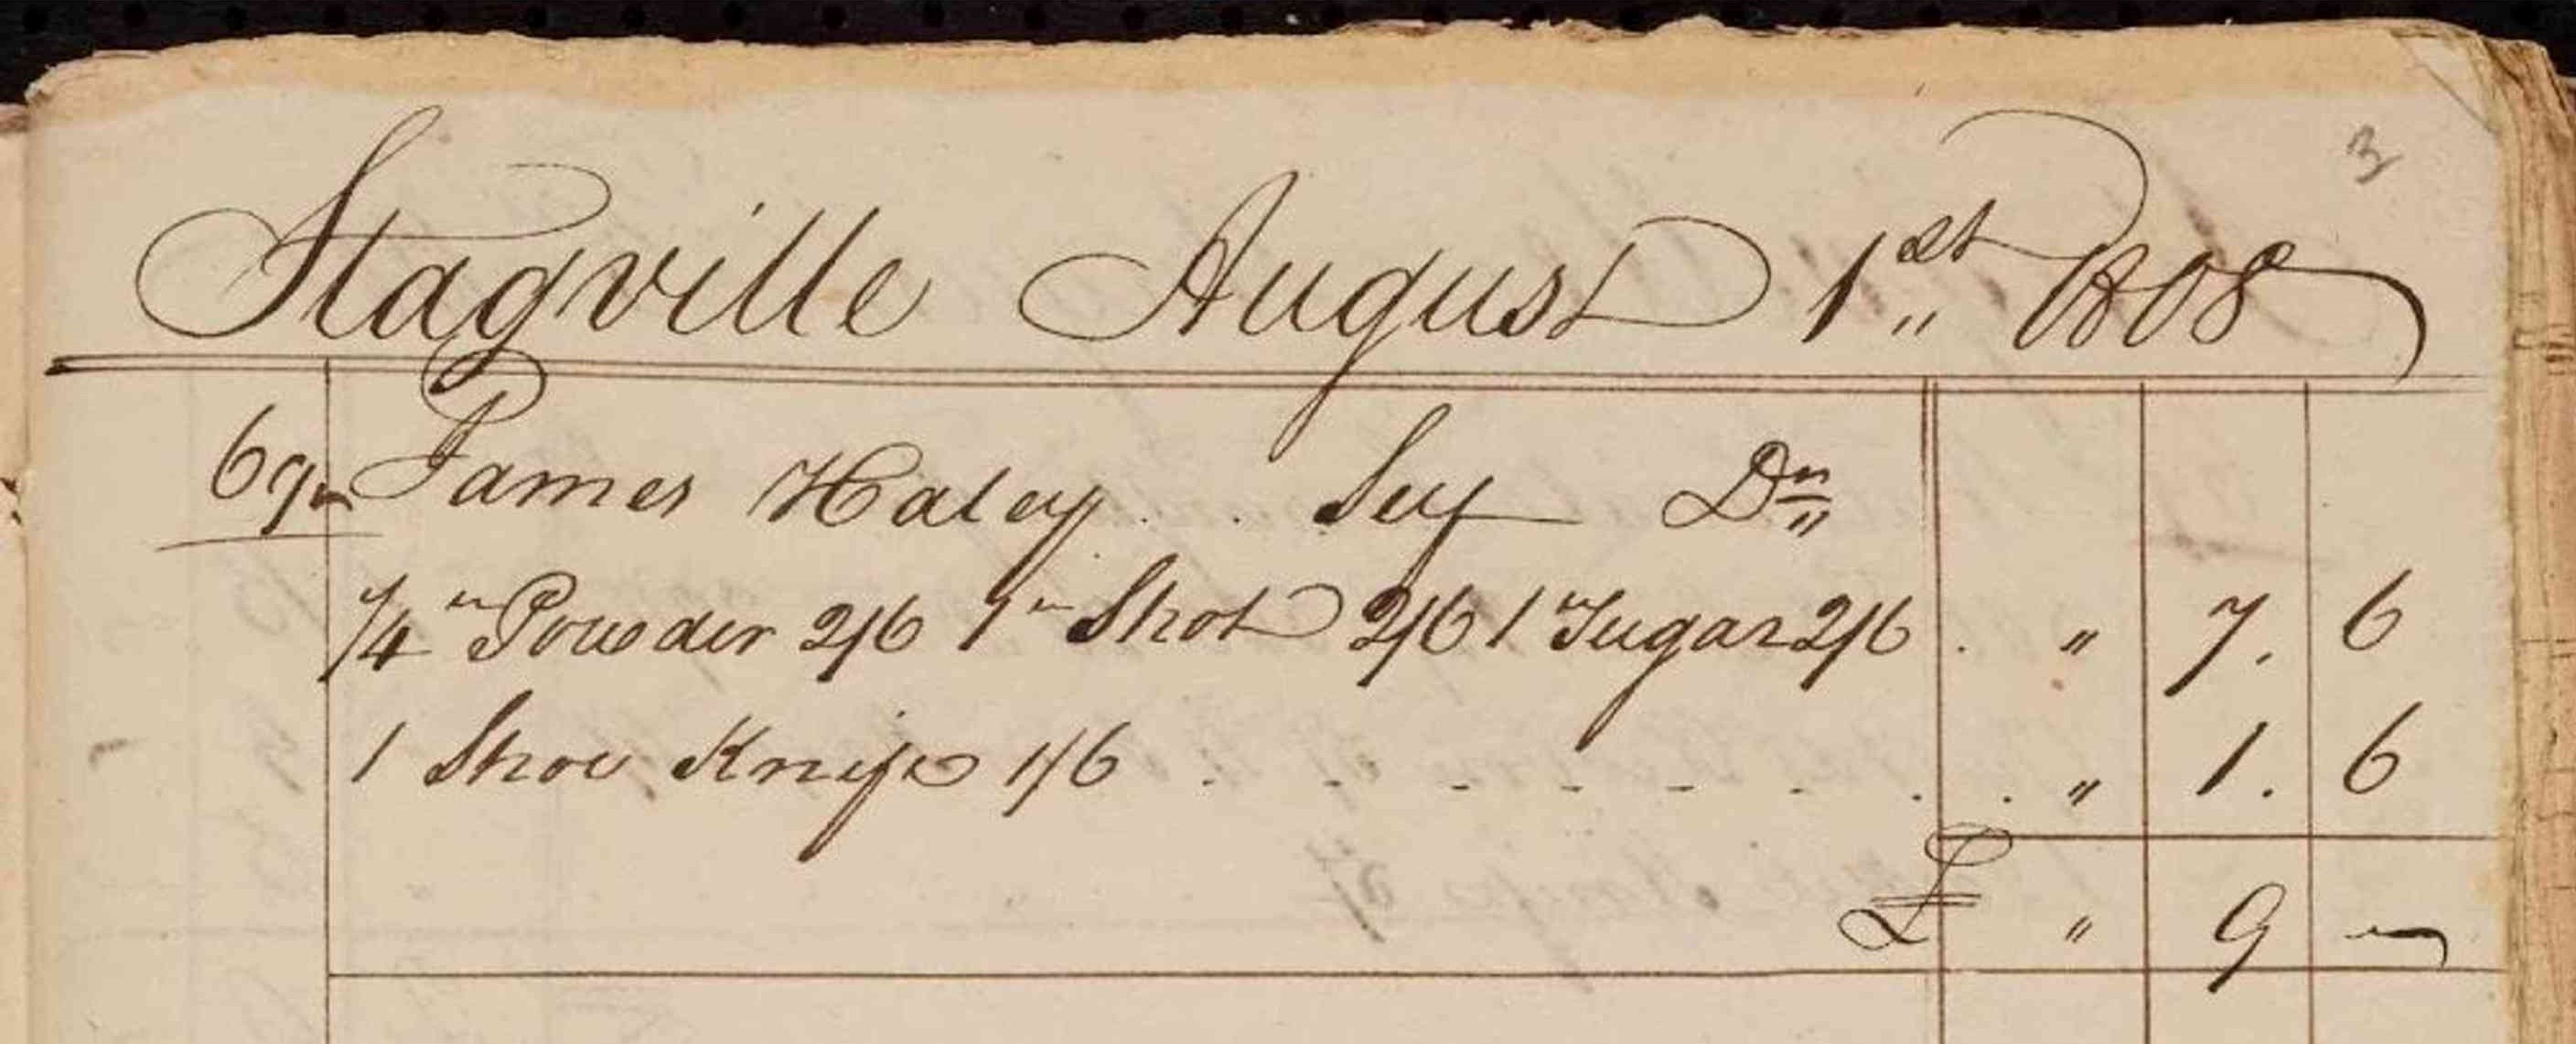 3
Stagville August 1st 1808
69 James Haley . . Self Dr
1/4 " Powder 2/6 1 " Shot 2/6 1 " Sugar 2/6 . " 7. 6
1 Shoe Knife 1/6 . . . . . . . . " 1. 6
£ " 9 —